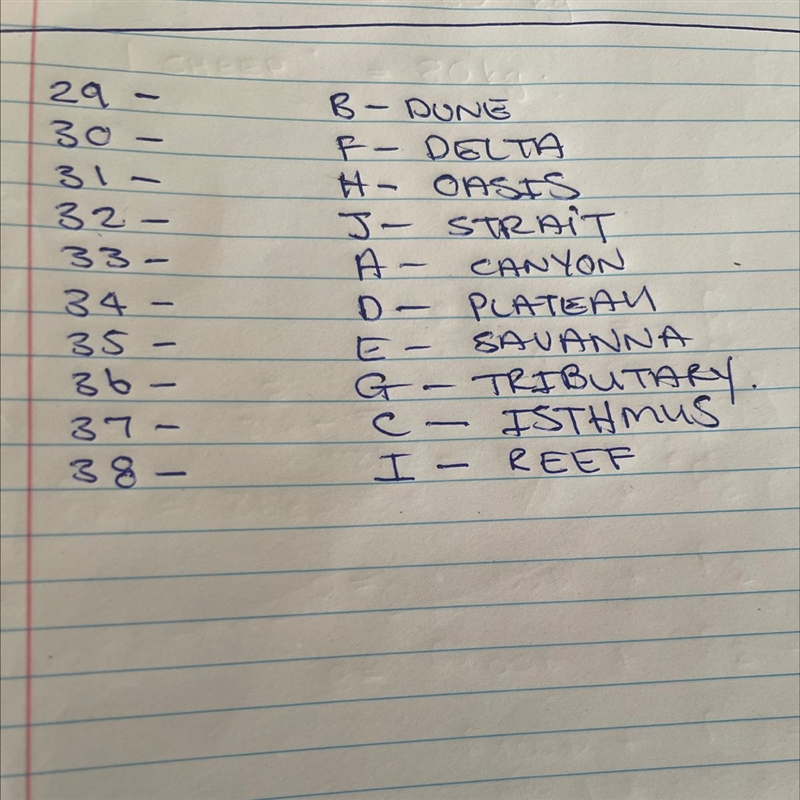 29 - B - DUNE
30 - F - DELTA
31 - H - OASIS
32 - J - STRAiT
33 - A - CANYON
34 - D - PLATEAU
35 - E - SAVANNA
36 - G - TRIBUTARY.
37 - C - ISTHMUS
38 - I - REEF